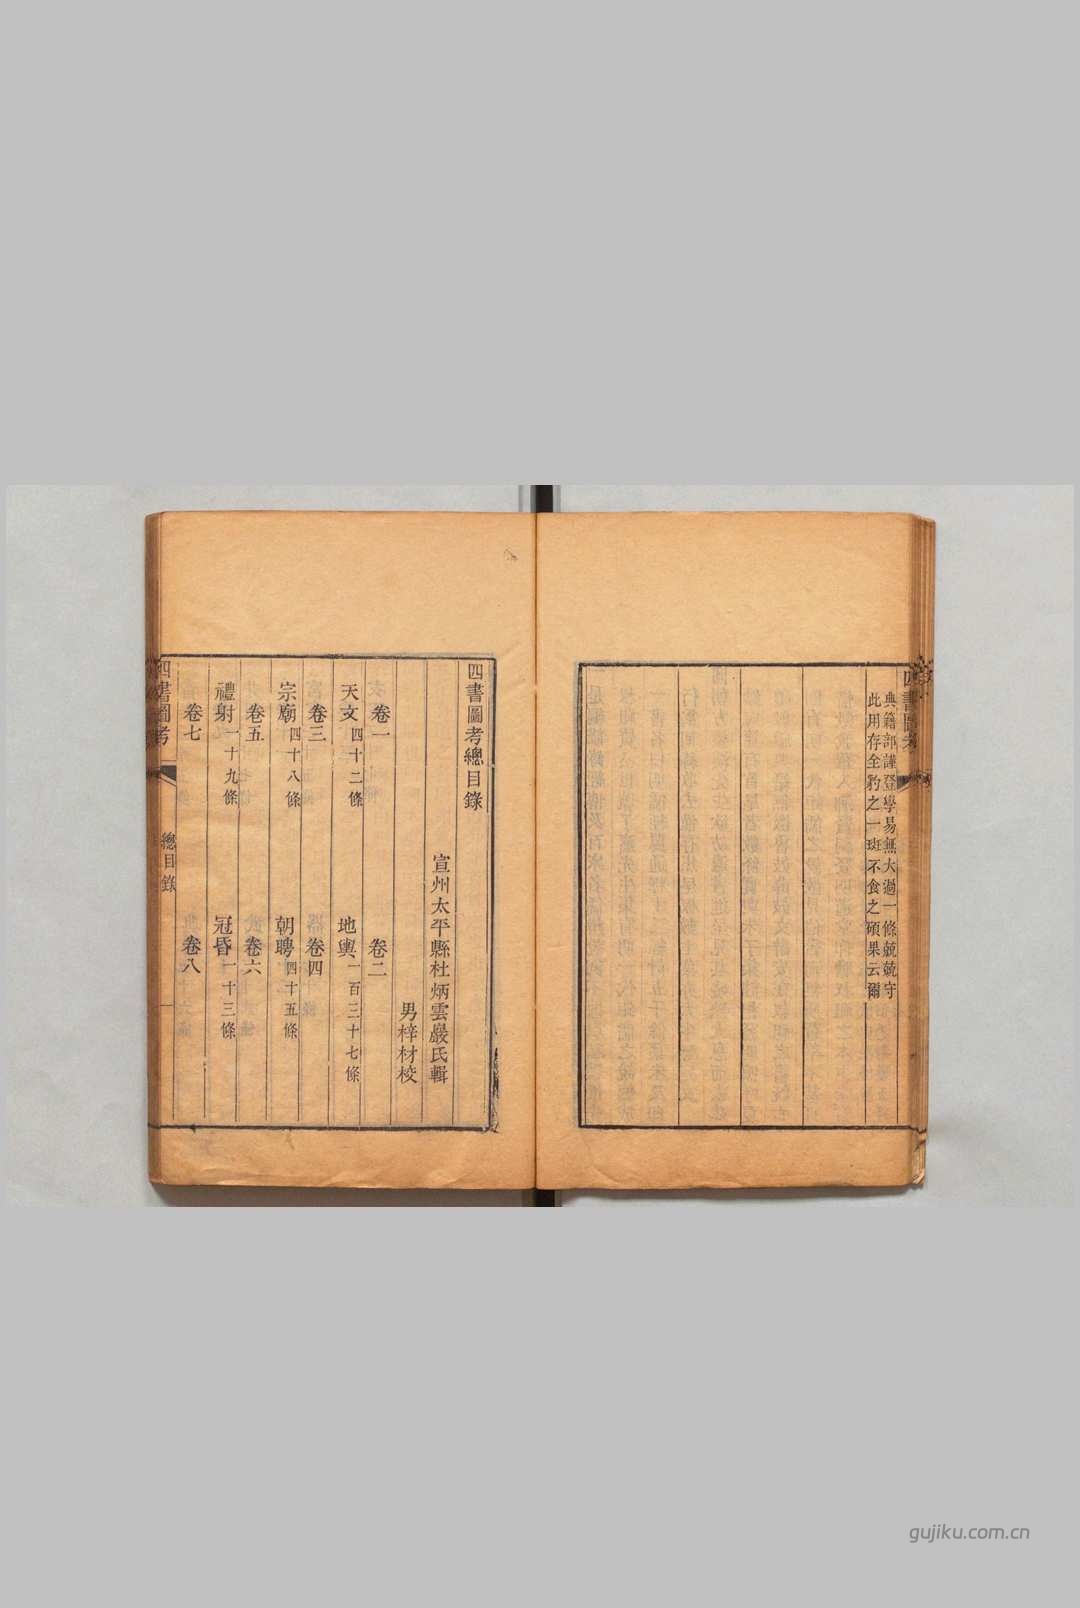 四書圖考
典籍部謹登學易無大過一條兢兢守
此用存全豹之一斑不食之碩果云爾
四書圖考總目錄
宣州太平縣杜炳雲巖氏輯
男梓材校
卷一
卷二
天文四十二條
地輿一百三十七條
卷三
卷四
宗廟四十八條
朝聘四十五條
卷五
卷六
禮射一十九條
冠昏一十三條
卷七
卷八
四書圖考
總目錄
一
gujiku.com.cn